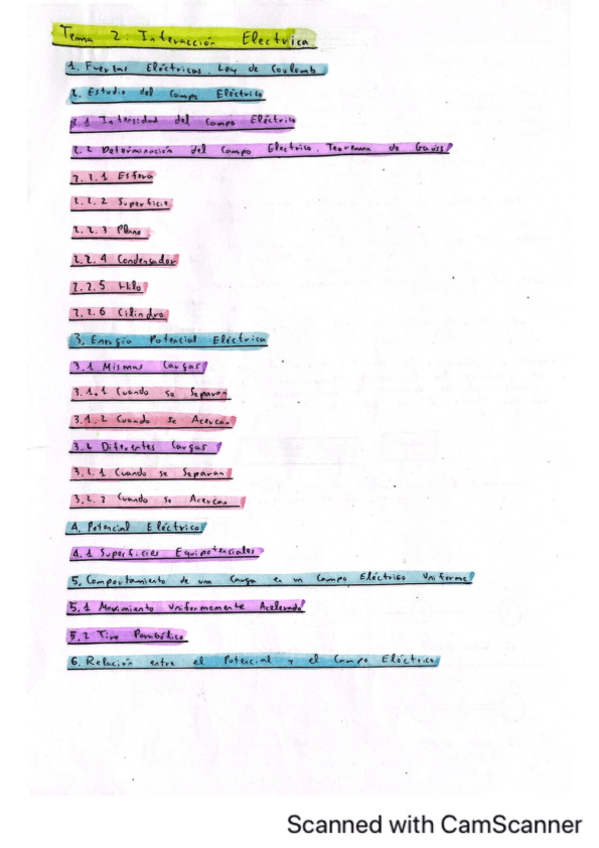 Tema 2. Interacción Electrica
1. Fuerzas Eléctricas. Ley de Coulomb
2. Estudio del Campo Eléctrico
2.1 Intensidad del Campo Eléctrico
2.2 Determinación del Campo Electrico. Teorema de Gauss
2.2.1 Esfera
2.2.2 Superficie
2.2.3 Plano
2.2.4 Condensador
2.2.5 Hilo
2.2.6 Cilindro
3. Energía Potencial Eléctrica
3.1 Mismas Cargas
3.1.1 Cuando se Separan
3.1.2 Cuando se Acercan
3.2 Diferentes Cargas
3.2.1 Cuando se Separan
3.2.2 Cuando se Acercan
4. Potencial Eléctrico
4.1 Superficies Equipotenciales
5. Comportamiento de una Carga en un Campo Eléctrico Uniforme
5.1 Movimiento Uniformemente Acelerado
5.2 Tiro Parabólico
6. Relación entre el Potencial y el Campo Eléctrico
Scanned with CamScanner